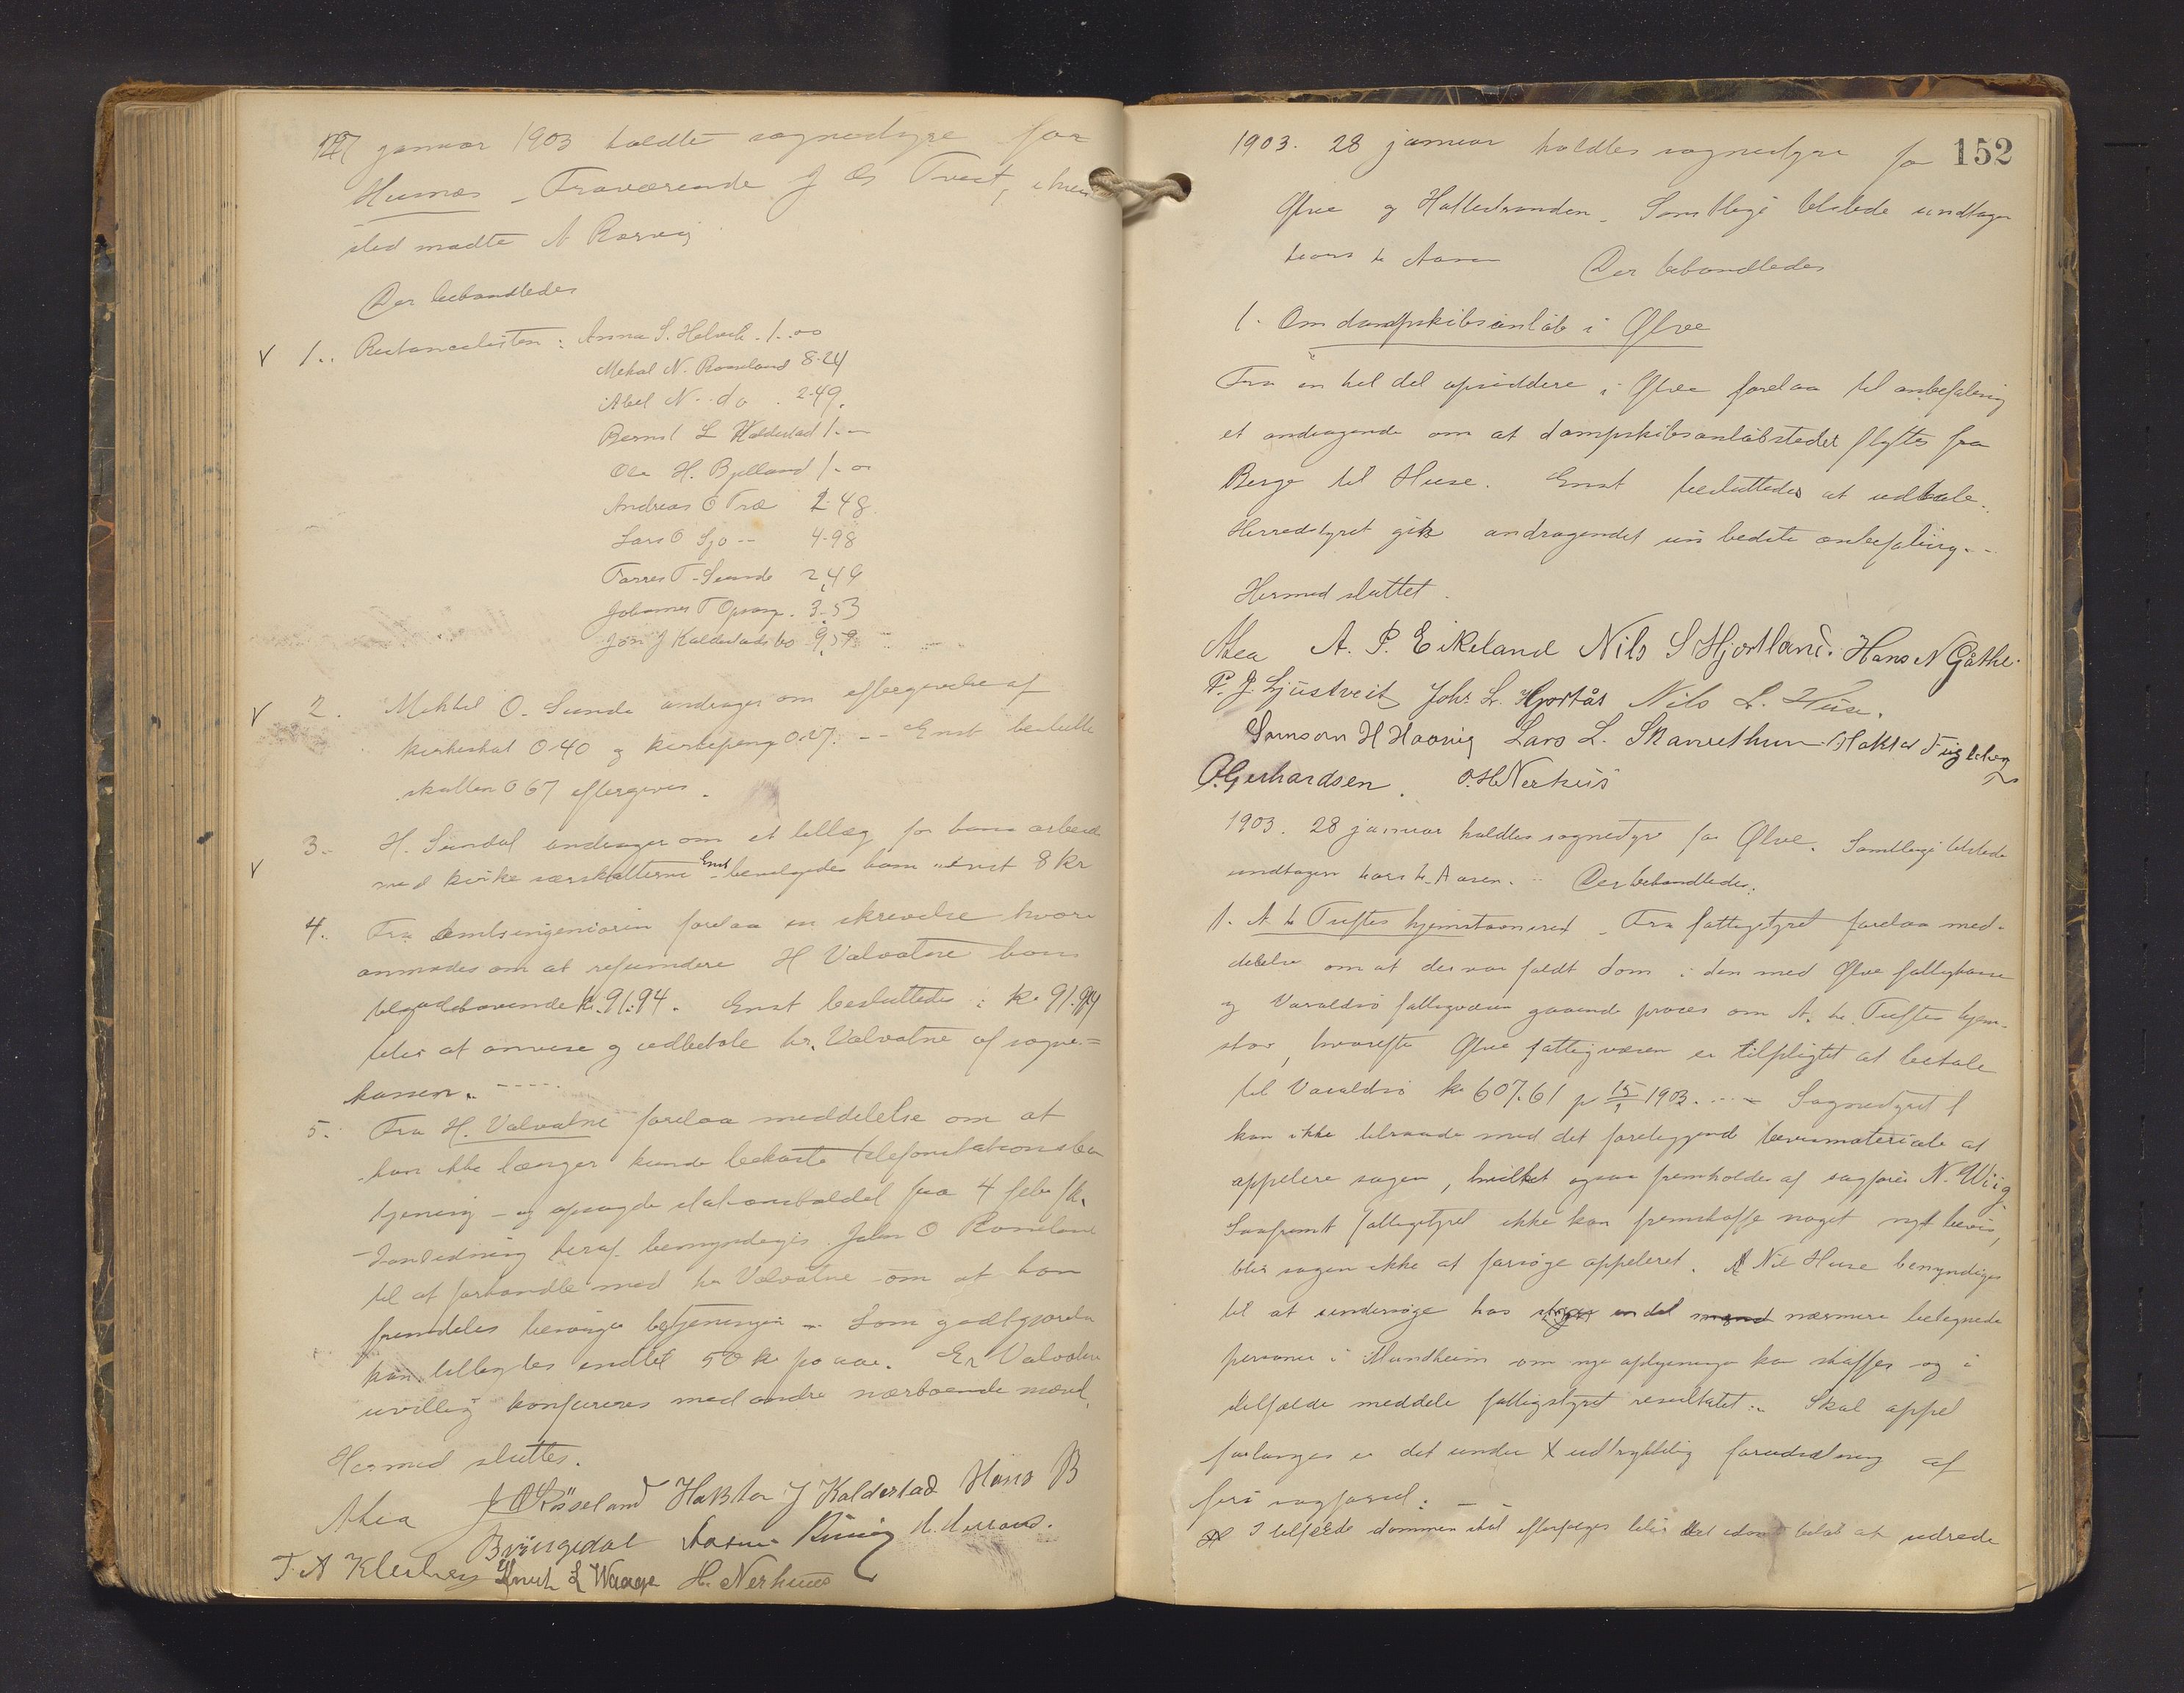 januar 1903 holdtes sognestyre for
Husnes - Fraværende J Os Tveit, i hvis
sted mødte N Rørvig
Der behandledes
V 1.. Restancelisten: Anna S. Helvik 1.00
Mikal N. Røsseland 8.24
Abel N - do . 2.49.
Bernt L Kaldestad 1.-
Ole H. Bjelland 1.00
Andreas O Træ 2.48
Lars O Sjo -- 4.98
Torres T. Sunde 2,49
Johannes T Opsang. 3.53
Jon J Kaldestads bo 9,59
V 2. Mikkel O. Sunde andrager om eftergivelse af
kirkeskat 0.40 og kirkepeng 0.27. -- Enst. besluttet
skatten 0 67 eftergives.
V 3. H. Sundal andrager om et tillæg for hans arbeide
med kirke særskatterne Enst bevilgedes ham 8 kr
4. Fra amtsingeniøren forelaa en skrivelse hvori
anmodes om at refundere H Valvatne hans
tilgodehavende kr. 91.94. Enst besluttedes: kr 91.94
blir at anvise og udbetale hr. Valvatne af sogne=
kassen. -----
5. Fra H. Valvatne forelaa meddelelse om at
han ikke længer kunde bekoste telefonstationsbe
tjening - og opsagde stationsholdet fra 4 febr
- I anledning heraf bemyndiges John O Røseland
til at forhandle med hr Valvatne om at han
fremdeles besørger betjeningen - Som godtgjørelse
kan tillegges indtil 50 kr pr aar. Er Valvatne
uvillig konfereres med andre nærboende mænd.
Hermed sluttes.
J O Røseland Hakton J Kaldestad Hans B
Bringedal
T. A Knut L Waage H. Nerhuus
152
1903. 28 januar holdtes sognestyre for
Ølve og Hatlestranden. Samtlige tilstede undtagen
Lars L Aasen Der behandledes
1. Om dampskibsanløb i Ølve
Fra en hel del opsiddere i Ølve forelaa til anbefaling
et andragende om at dampskibsanløbstedet flyttes fra
Berge til Huse. Enst besluttedes at udtale.
Herredstyret gir andragendet sin bedste anbefaling. --
Hermed sluttet.
A. P. Eikeland Nils S Hjortland. Hans N Gåthe.
P. J. Ljustveit Johs L. Hjortås Nils L. Huse.
Samson H Haavig Lars L. Skarvethun
O. Gerhardsen. O. H Nerhus
1903. 28 januar holdtes sognestyre for Ølve. Samtlige tilstede
undtagen Lars L. Aasen. - Der behandledes:
1. A. L Tuftes hjemstavnsret - Fra fattigstyret forelaa med-
delelse om at der var faldt dom i den med Ølve fattigkasse
og Varaldsø fattigvæsen gaaende proces om A. L. Tuftes hjem-
stav, hvorefter Ølve fattigvæsen er tilpligtet at betale
til Varaldsø kr 607.61 pr 15/1 1903. --- Sognestyret
kan ikke tilraade med det foreliggende bevismateriale at
appelere sagen, hvilket ogsaa fremholdes af sagfører N. Wiig
Saafremt fattigstyret ikke kan fremskaffe noget nyt bevis,
blir sagen ikke at forsøge appeleret. Nils Huse bemyndiges
til at undersøge hos en del mænd nærmere betegnede
personer i Mundheim om nye oplysninger kan skaffes og i
tilfælde meddele fattigstyret resultatet. Skal appel
forlanges er det under X udtrykkelig forudsætning af
fri sagførsel.
I tilfælde dommen skal efterfølges blir det idømte beløb at udrede